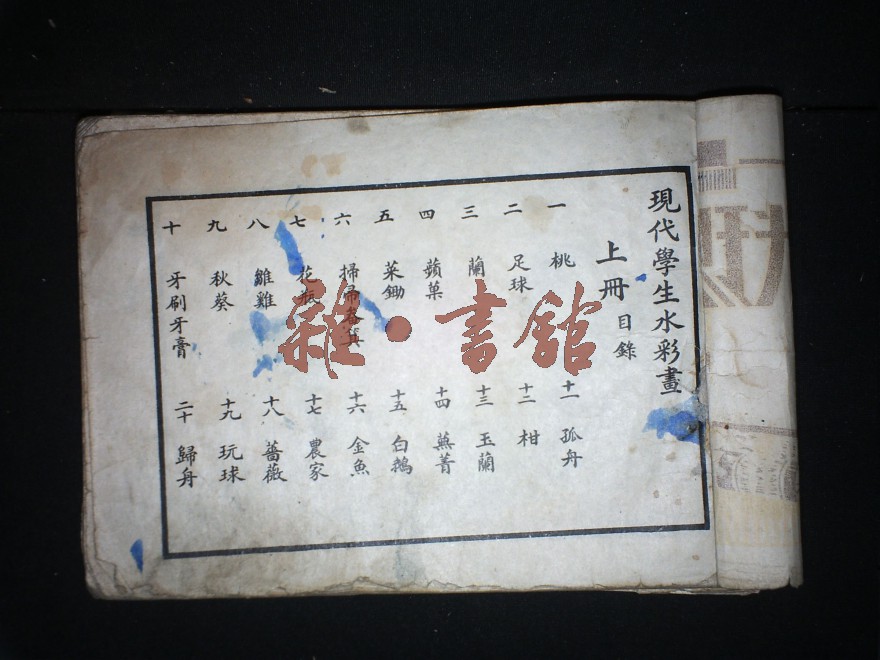 現代學生水彩畫
上冊 目錄
一 桃
二 足球
三 蘭
四 蘋菓
五 菜鋤
六 掃帚畚箕
七 花瓶
八 雛雞
九 秋葵
十 牙刷牙膏
十一 孤舟
十二 柑
十三 玉蘭
十四 蕪菁
十五 白鵝
十六 金魚
十七 農家
十八 薔薇
十九 玩球
二十 歸舟
雜·書館